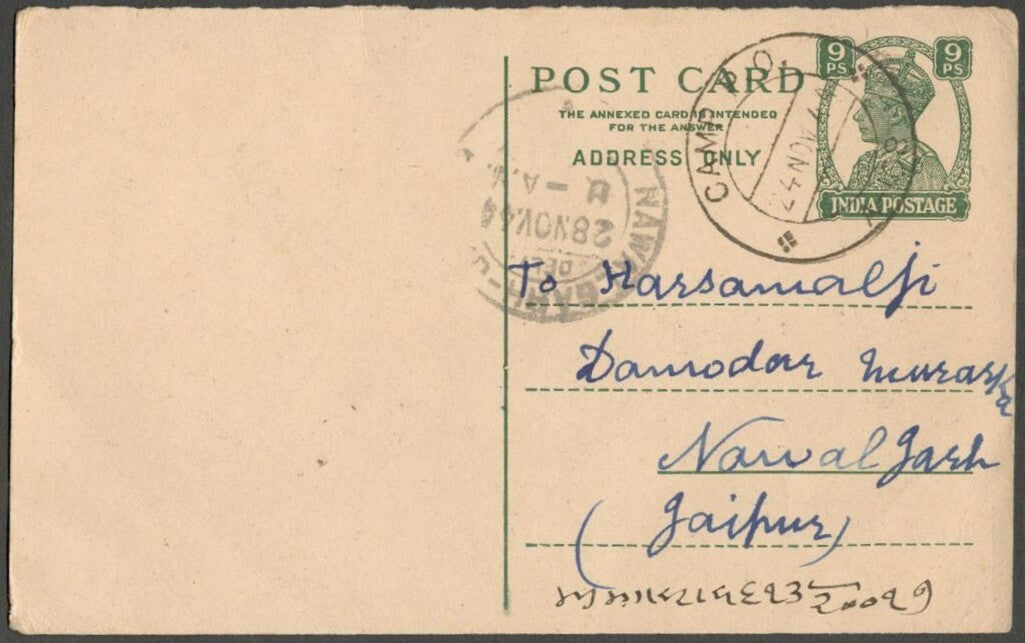 POST CARD
THE ANNEXED CARD IS INTENDED
FOR THE ANSWER
ADDRESS ONLY
9 PS
9 PS
INDIA POSTAGE
CAMP P.O.
24 NOV 44
28 NOV. 44
To Harsamalji
Damodar Murarka
Nawalgarh
(Jaipur)